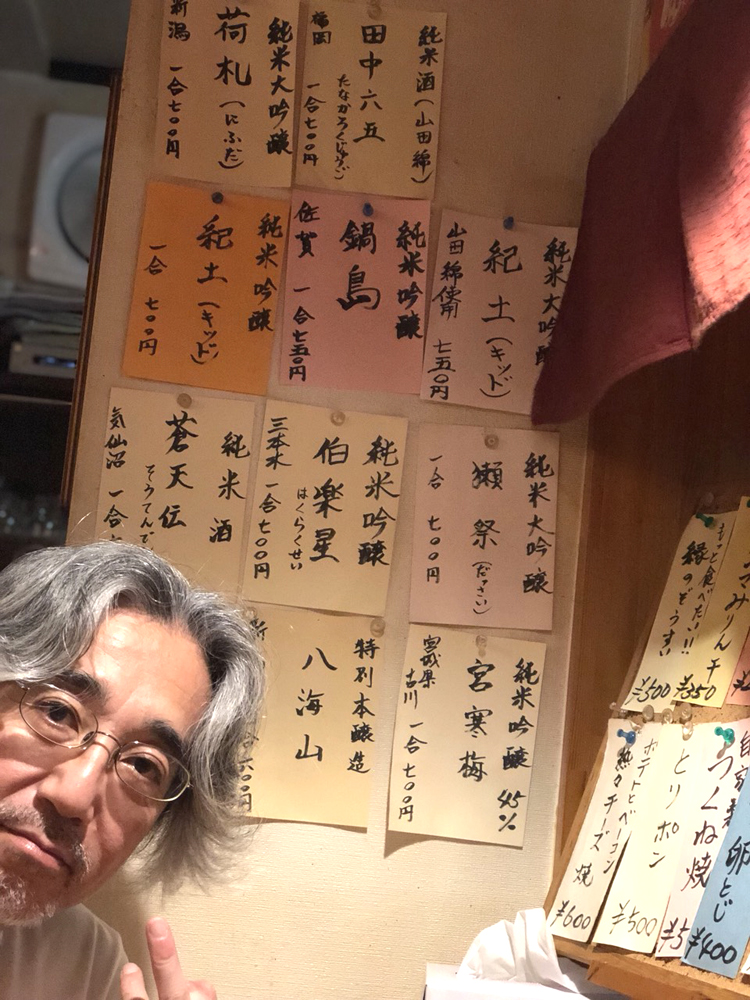 純米酒(山田錦)
田中六五
たなかろくじゅうご
福岡
一合七〇〇円
純米大吟醸
荷札(にふだ)
新潟
一合七〇〇円
純米大吟醸
紀土(キッド)
山田錦使用
七五〇円
純米吟醸
鍋島
佐賀
一合七五〇円
純米吟醸
紀土(キッド)
一合 七〇〇円
純米大吟醸
獺祭(だっさい)
一合 七〇〇円
純米吟醸
伯楽星
はくらくせい
三本木
一合七〇〇円
純米酒
蒼天伝
そうてんで
気仙沼
一合
純米吟醸 45%
宮寒梅
宮城県
古川
一合 七〇〇円
特別本醸造
八海山
合六〇〇円
さみりん干
¥350
もっと食べたい!!
縁のぞうすい
¥500
自家製
卵とじ
¥400
つくね焼
とりポン
¥500
ポテトとベーコン
熱々チーズ焼
¥600